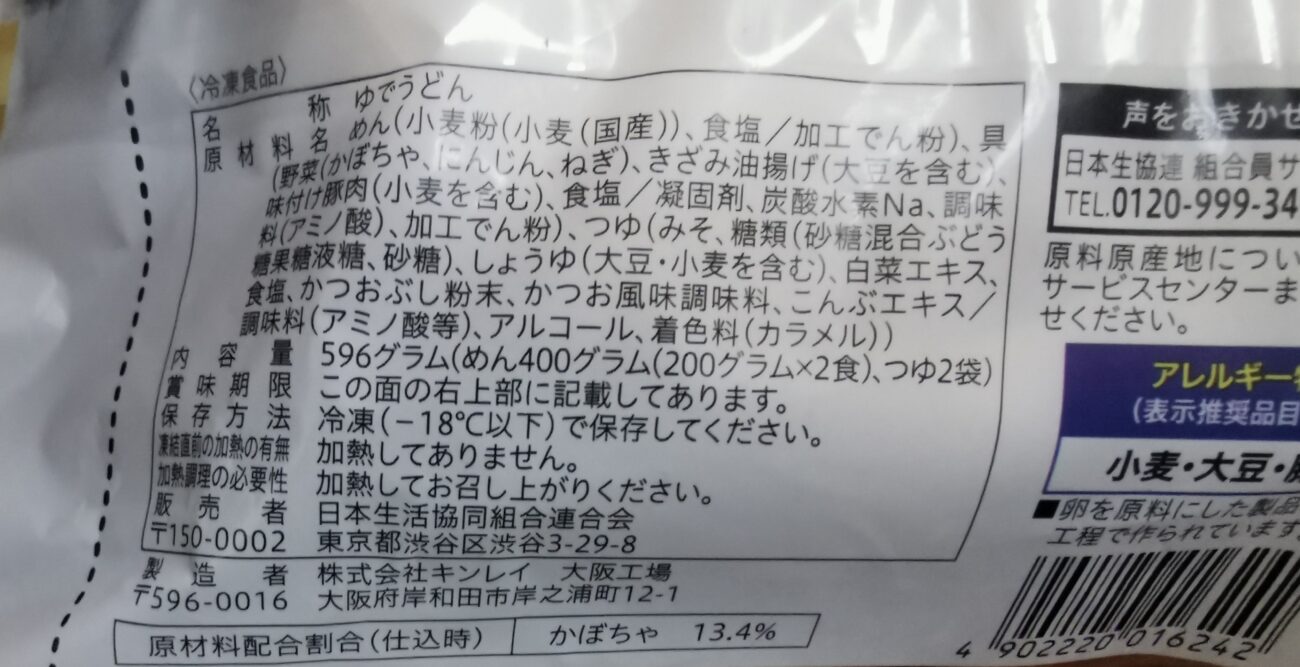 〈冷凍食品〉
名称 ゆでうどん
原材料名 めん(小麦粉(小麦(国産))、食塩/加工でん粉)、具
(野菜(かぼちゃ、にんじん、ねぎ)、きざみ油揚げ(大豆を含む)、
味付け豚肉(小麦を含む)、食塩/凝固剤、炭酸水素Na、調味
料(アミノ酸)、加工でん粉)、つゆ(みそ、糖類(砂糖混合ぶどう
糖果糖液糖、砂糖)、しょうゆ(大豆・小麦を含む)、白菜エキス、
食塩、かつおぶし粉末、かつお風味調味料、こんぶエキス/
調味料(アミノ酸等)、アルコール、着色料(カラメル))
内容量 596グラム(めん400グラム(200グラム×2食)、つゆ2袋)
賞味期限 この面の右上部に記載してあります。
保存方法 冷凍(-18℃以下)で保存してください。
凍結直前の加熱の有無 加熱してありません。
加熱調理の必要性 加熱してお召し上がりください。
販売者 日本生活協同組合連合会
〒150-0002 東京都渋谷区渋谷3-29-8
製造者 株式会社キンレイ 大阪工場
〒596-0016 大阪府岸和田市岸之浦町12-1
原材料配合割合(仕込時) かぼちゃ 13.4%
声をおきかせ
日本生協連 組合員サ
TEL.0120-999-34
原料原産地につい
サービスセンターま
せください。
アレルギー
(表示推奨品目
小麦・大豆・
■卵を原料にした製品
工程で作られています
4 902220 016242